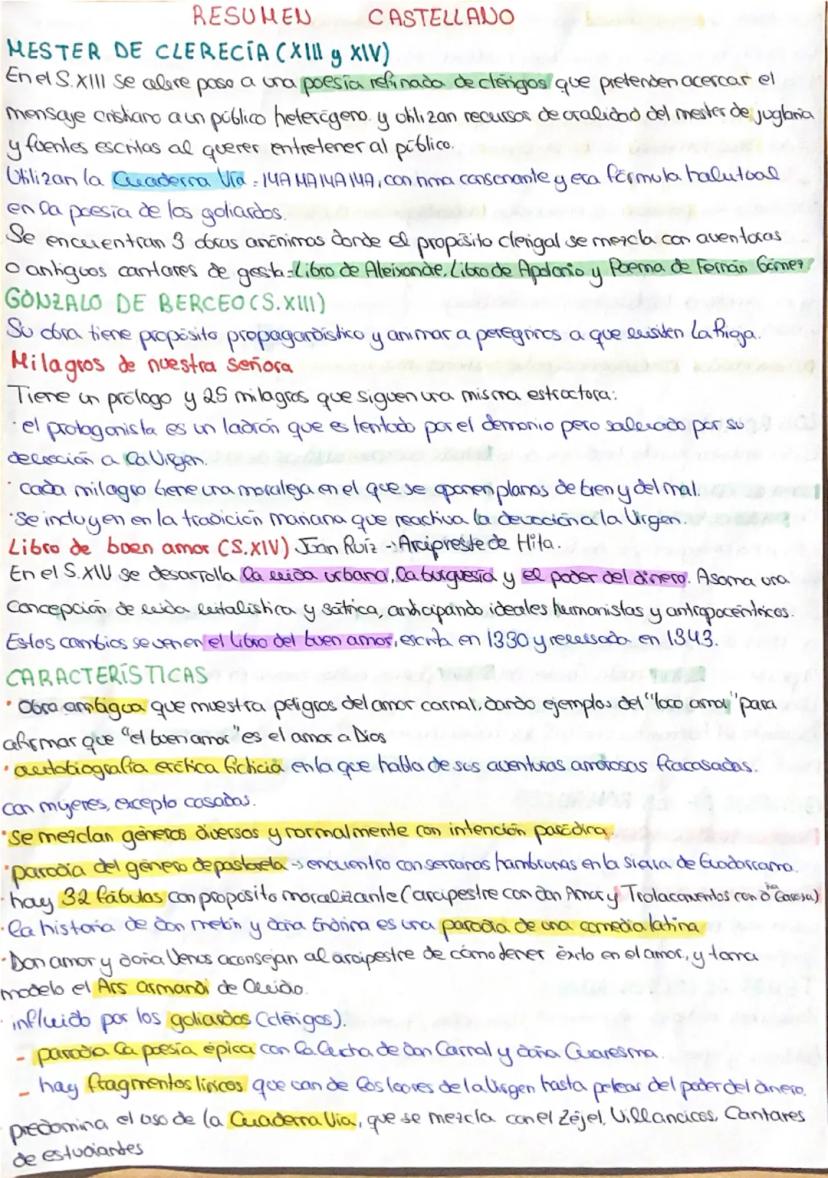 RESUMEN CASTELLANO
MESTER DE CLERECÍA (XIII y XIV)
En el S.XIII se abre paso a una poesía refinada de clérigos que pretenden acercar el
mensaje cristiano a un público heterógeno y utilizan recursos de oralidad del mester de juglaría
y fuentes escritas al querer entretener al público.
Utilizan la Cuaderna Vía = 14A 14A 14A 14A, con rima consonante y era fórmula habitual
en la poesía de los goliardos.
Se encuentran 3 obras anónimas donde el propósito clerigal se mezcla con aventuras
o antiguos cantares de gesta = Libro de Aleixandre, Libro de Apolonio y Poema de Fernán Gómez
GONZALO DE BERCEO (S.XIII)
Su obra tiene propósito propagandístico y animar a peregrinos a que visiten La Rioja.
Milagros de nuestra señora
Tiene un prólogo y 25 milagros que siguen una misma estructura:
· el protagonista es un ladrón que es tentado por el demonio pero salvado por su
devoción a la Virgen.
· cada milagro tiene una moraleja en el que se oponen planos de bien y del mal.
· Se incluyen en la tradición mariana que reactiva la devoción a la Virgen.
Libro de buen amor (S.XIV) Juan Ruiz → Arcipreste de Hita.
En el S.XIV se desarrolla la vida urbana, la burguesía y el poder del dinero. Asoma una
concepción de vida vitalística y satírica, anticipando ideales humanistas y antropocéntricos.
Estos cambios se ven en el libro del buen amor, escrita en 1330 y revisada en 1343.
CARACTERÍSTICAS
· Obra ambigua que muestra peligros del amor carnal, dando ejemplos del "loco amor" para
afirmar que "el buen amor" es el amor a Dios
· autobiografía erótica ficticia en la que habla de sus aventuras amorosas fracasadas.
con mujeres, excepto casadas.
· Se mezclan géneros diversos y normalmente con intención paródica
· parodia del género de pastorela → encuentro con serranas hombrunas en la sierra de Guadarrama.
· hay 32 fábulas con propósito moralizante (arcipestre con don Amor y Trotaconventos con Dña Garoza)
· la historia de don melón y doña Endrina es una parodia de una comedia latina
· Don amor y doña Venus aconsejan al arcipestre de cómo tener éxito en el amor, y toma
modelo el Ars Amandi de Ovidio.
· influido por los goliardos (clérigos).
- parodia la poesía épica con la lucha de Don Carnal y doña Cuaresma.
- hay fragmentos líricos que van de los loores de la Virgen hasta pelear del poder del dinero.
· predomina el uso de la Cuaderna Vía, que se mezcla con el Zéjel, Villancicos, Cantares
de estudiantes